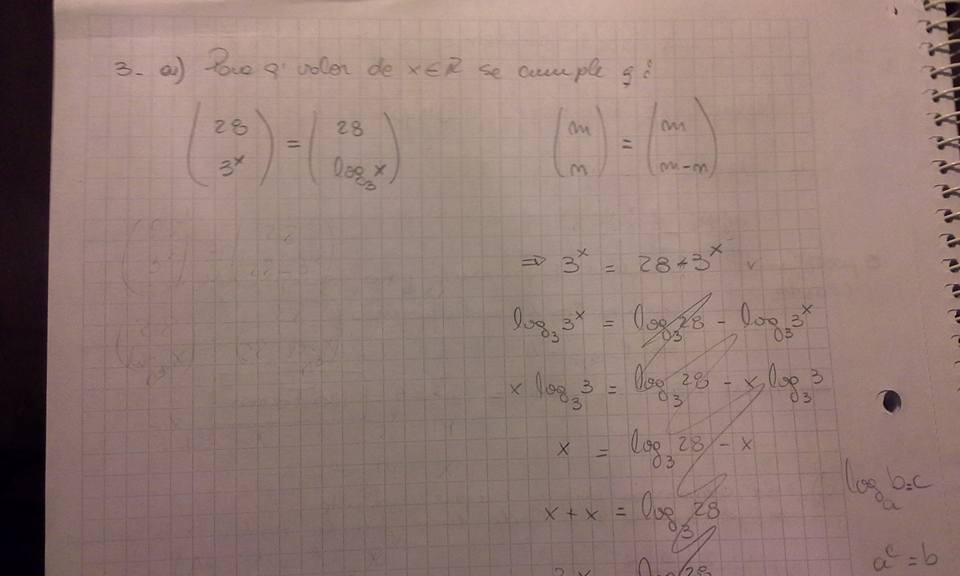 3- a) Para q' valor de x ∈ ℝ se cumple q:
(28 3^x) = (28 log₃x) (m n) = (m m-n)
⇒ 3^x = 28-3^x
log₃3^x = log₃28 - log₃3^x
x log₃3 = log₃28 - x log₃3
x = log₃28 - x
x + x = log₃28
log_a b=c
a^c = b